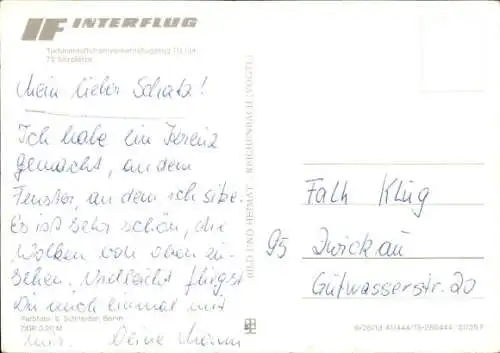 IF INTERFLUG
Turbinenluftstrahlverkehrsflugzeug TU 134
72 Sitzplätze
Mein lieber Schatz!
Ich habe ein Kreuz
gemacht, an dem
Fenster, an dem ich sitze.
Es ist sehr schön, die
Wolken von oben zu
sehen. Vielleicht fliegst
Du auch einmal mit
mir. Deine
Farbfoto: G. Schneider, Berlin
DDR 0,20 M
BILD UND HEIMAT REICHENBACH (VOGTL)
Falk Klug
95 Zwickau
Gutwasserstr. 20